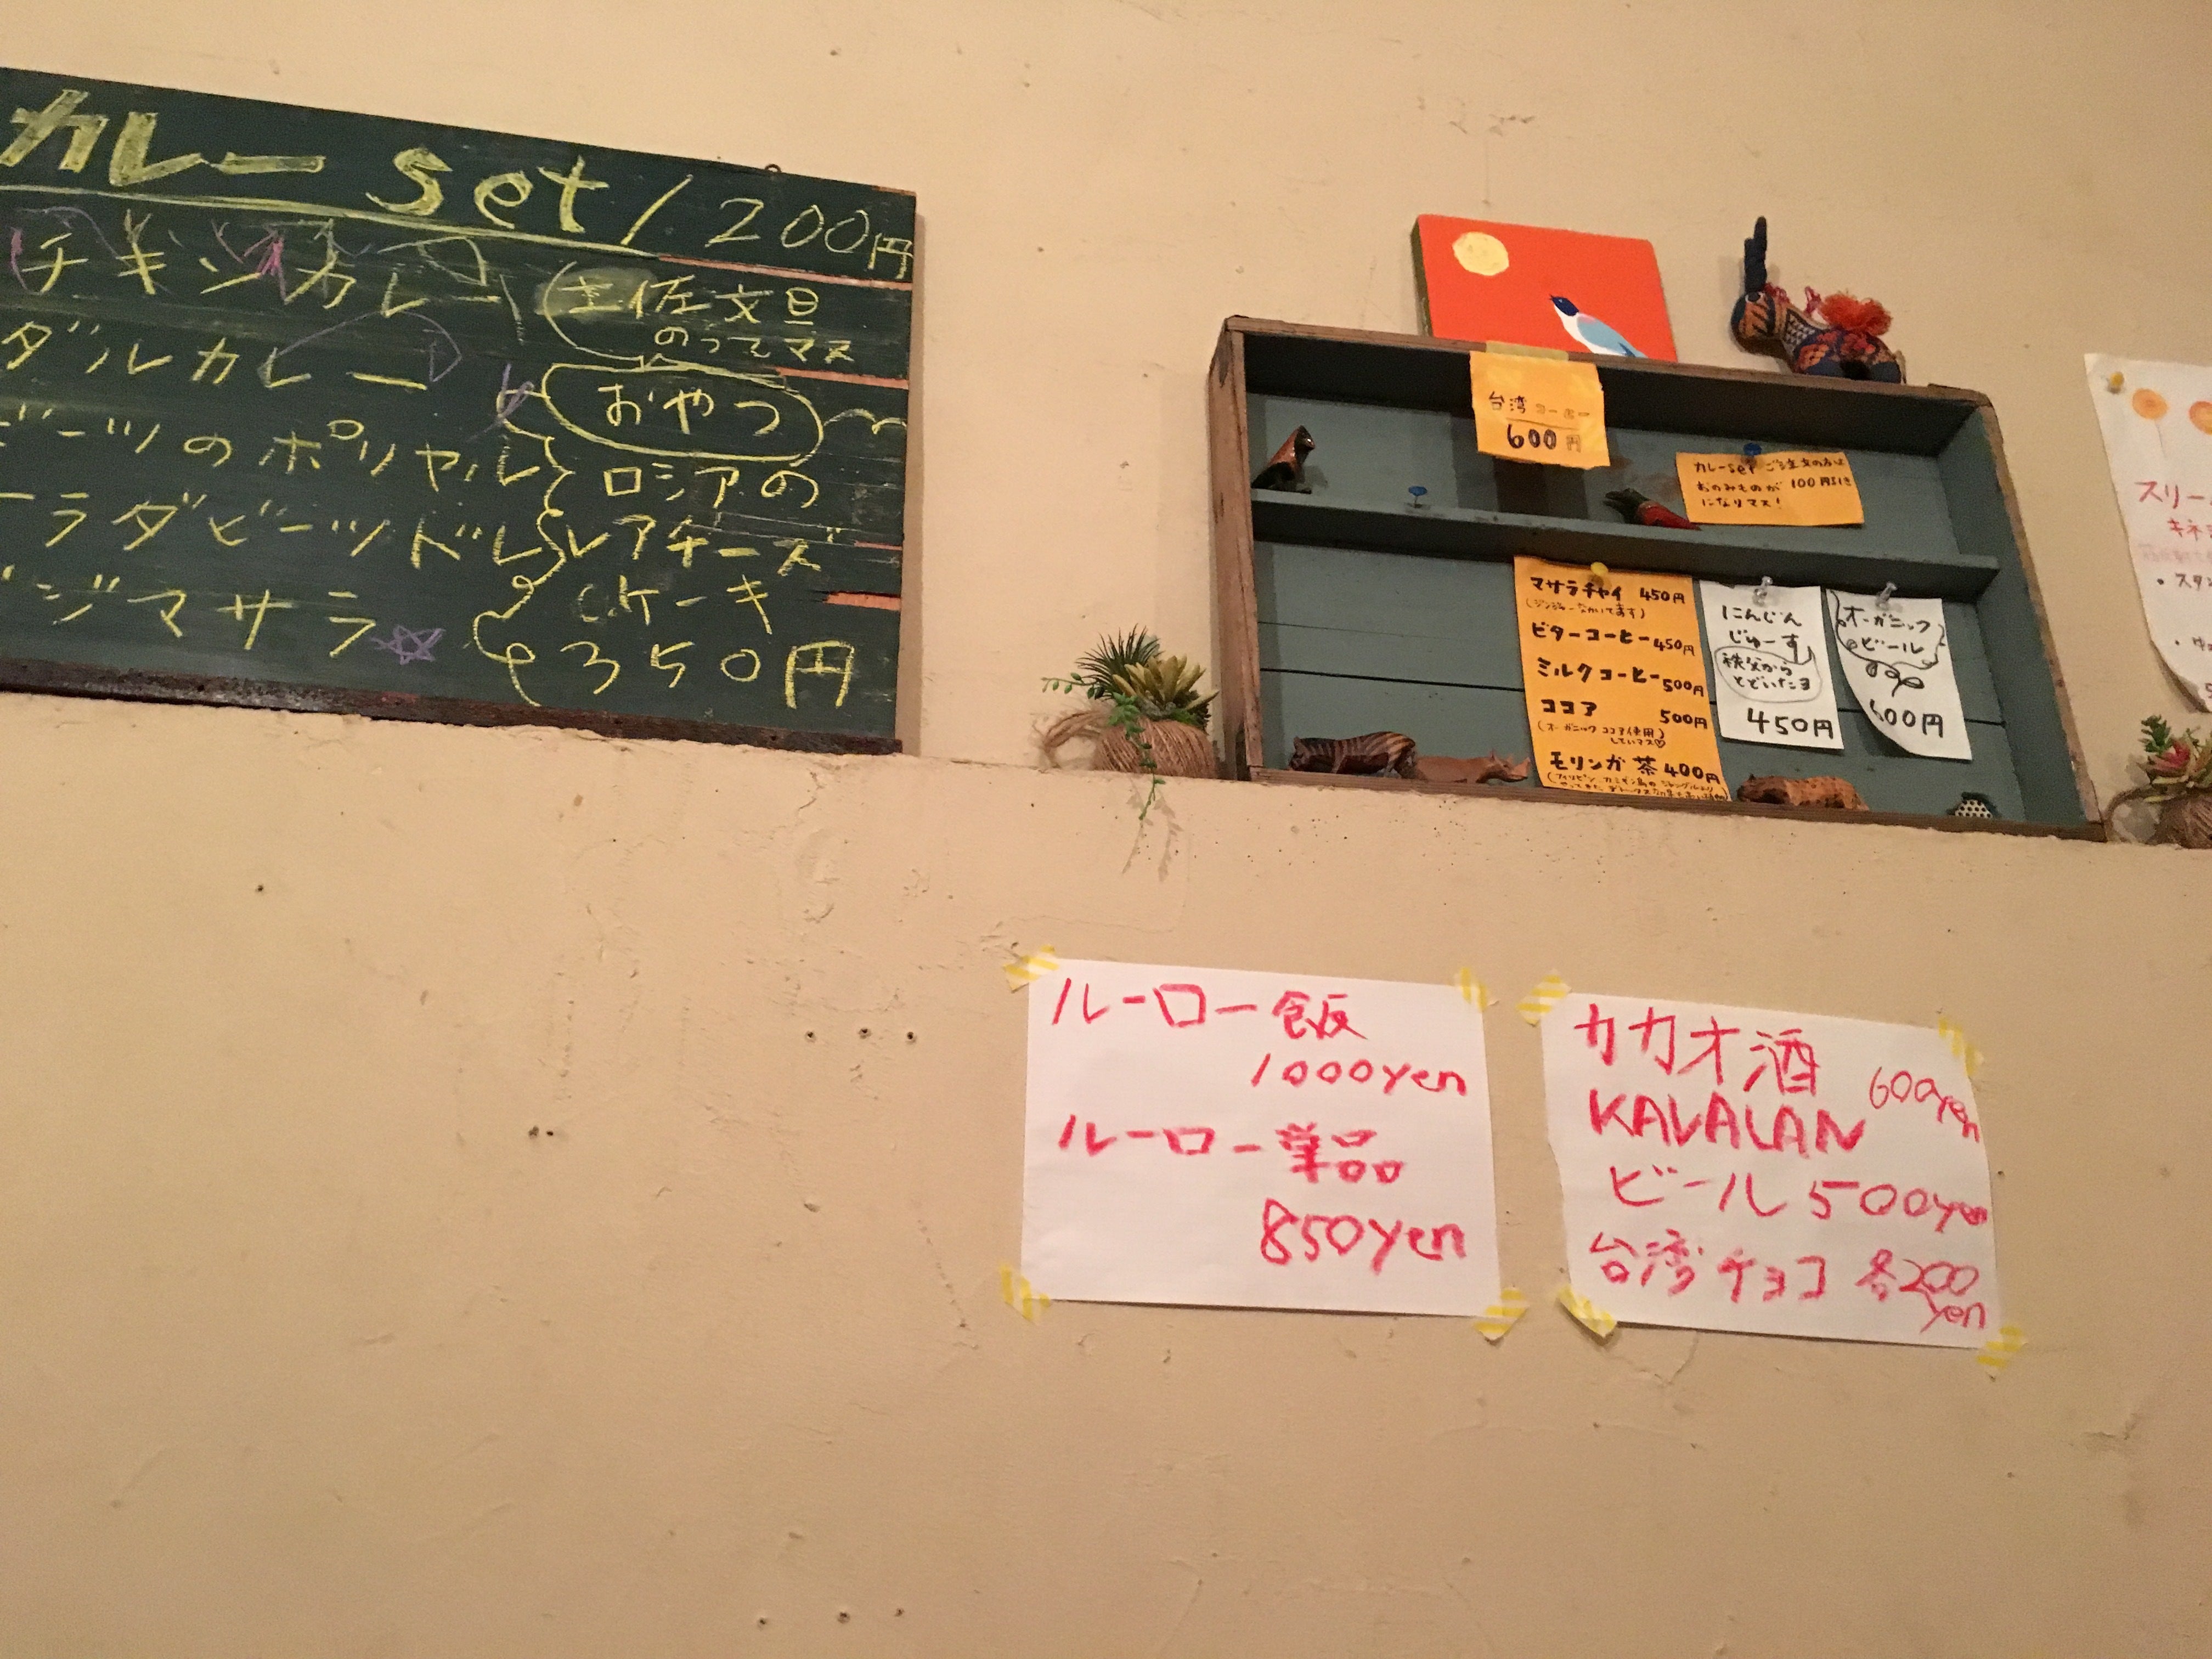 カレー set 1200円
チキンカレー
土佐文旦
のってマス
ダルカレー
おやつ
ビーツのポリヤル
ロシアの
ーラダビーツドレ
レアチーズ
ケーキ
ジマサラ
350円
台湾コーヒー
600円
カレーset ご注文の方は
おのみものが 100円引き
になりマス!
マサラチャイ 450円
ビターコーヒー 450円
ミルクコーヒー 500円
ココア 500円
(オーガニックココア使用
していマス♡)
モリンガ茶 400円
にんじん
じゅーす
秩父から
とどいたヨ
450円
オーガニック
ビール
600円
スリー
キネ
・スタン
ルーロー飯
1000yen
ルーロー単品
850yen
カカオ酒
600yen
KAVALAN
ビール 500yen
台湾チョコ 各200
yen